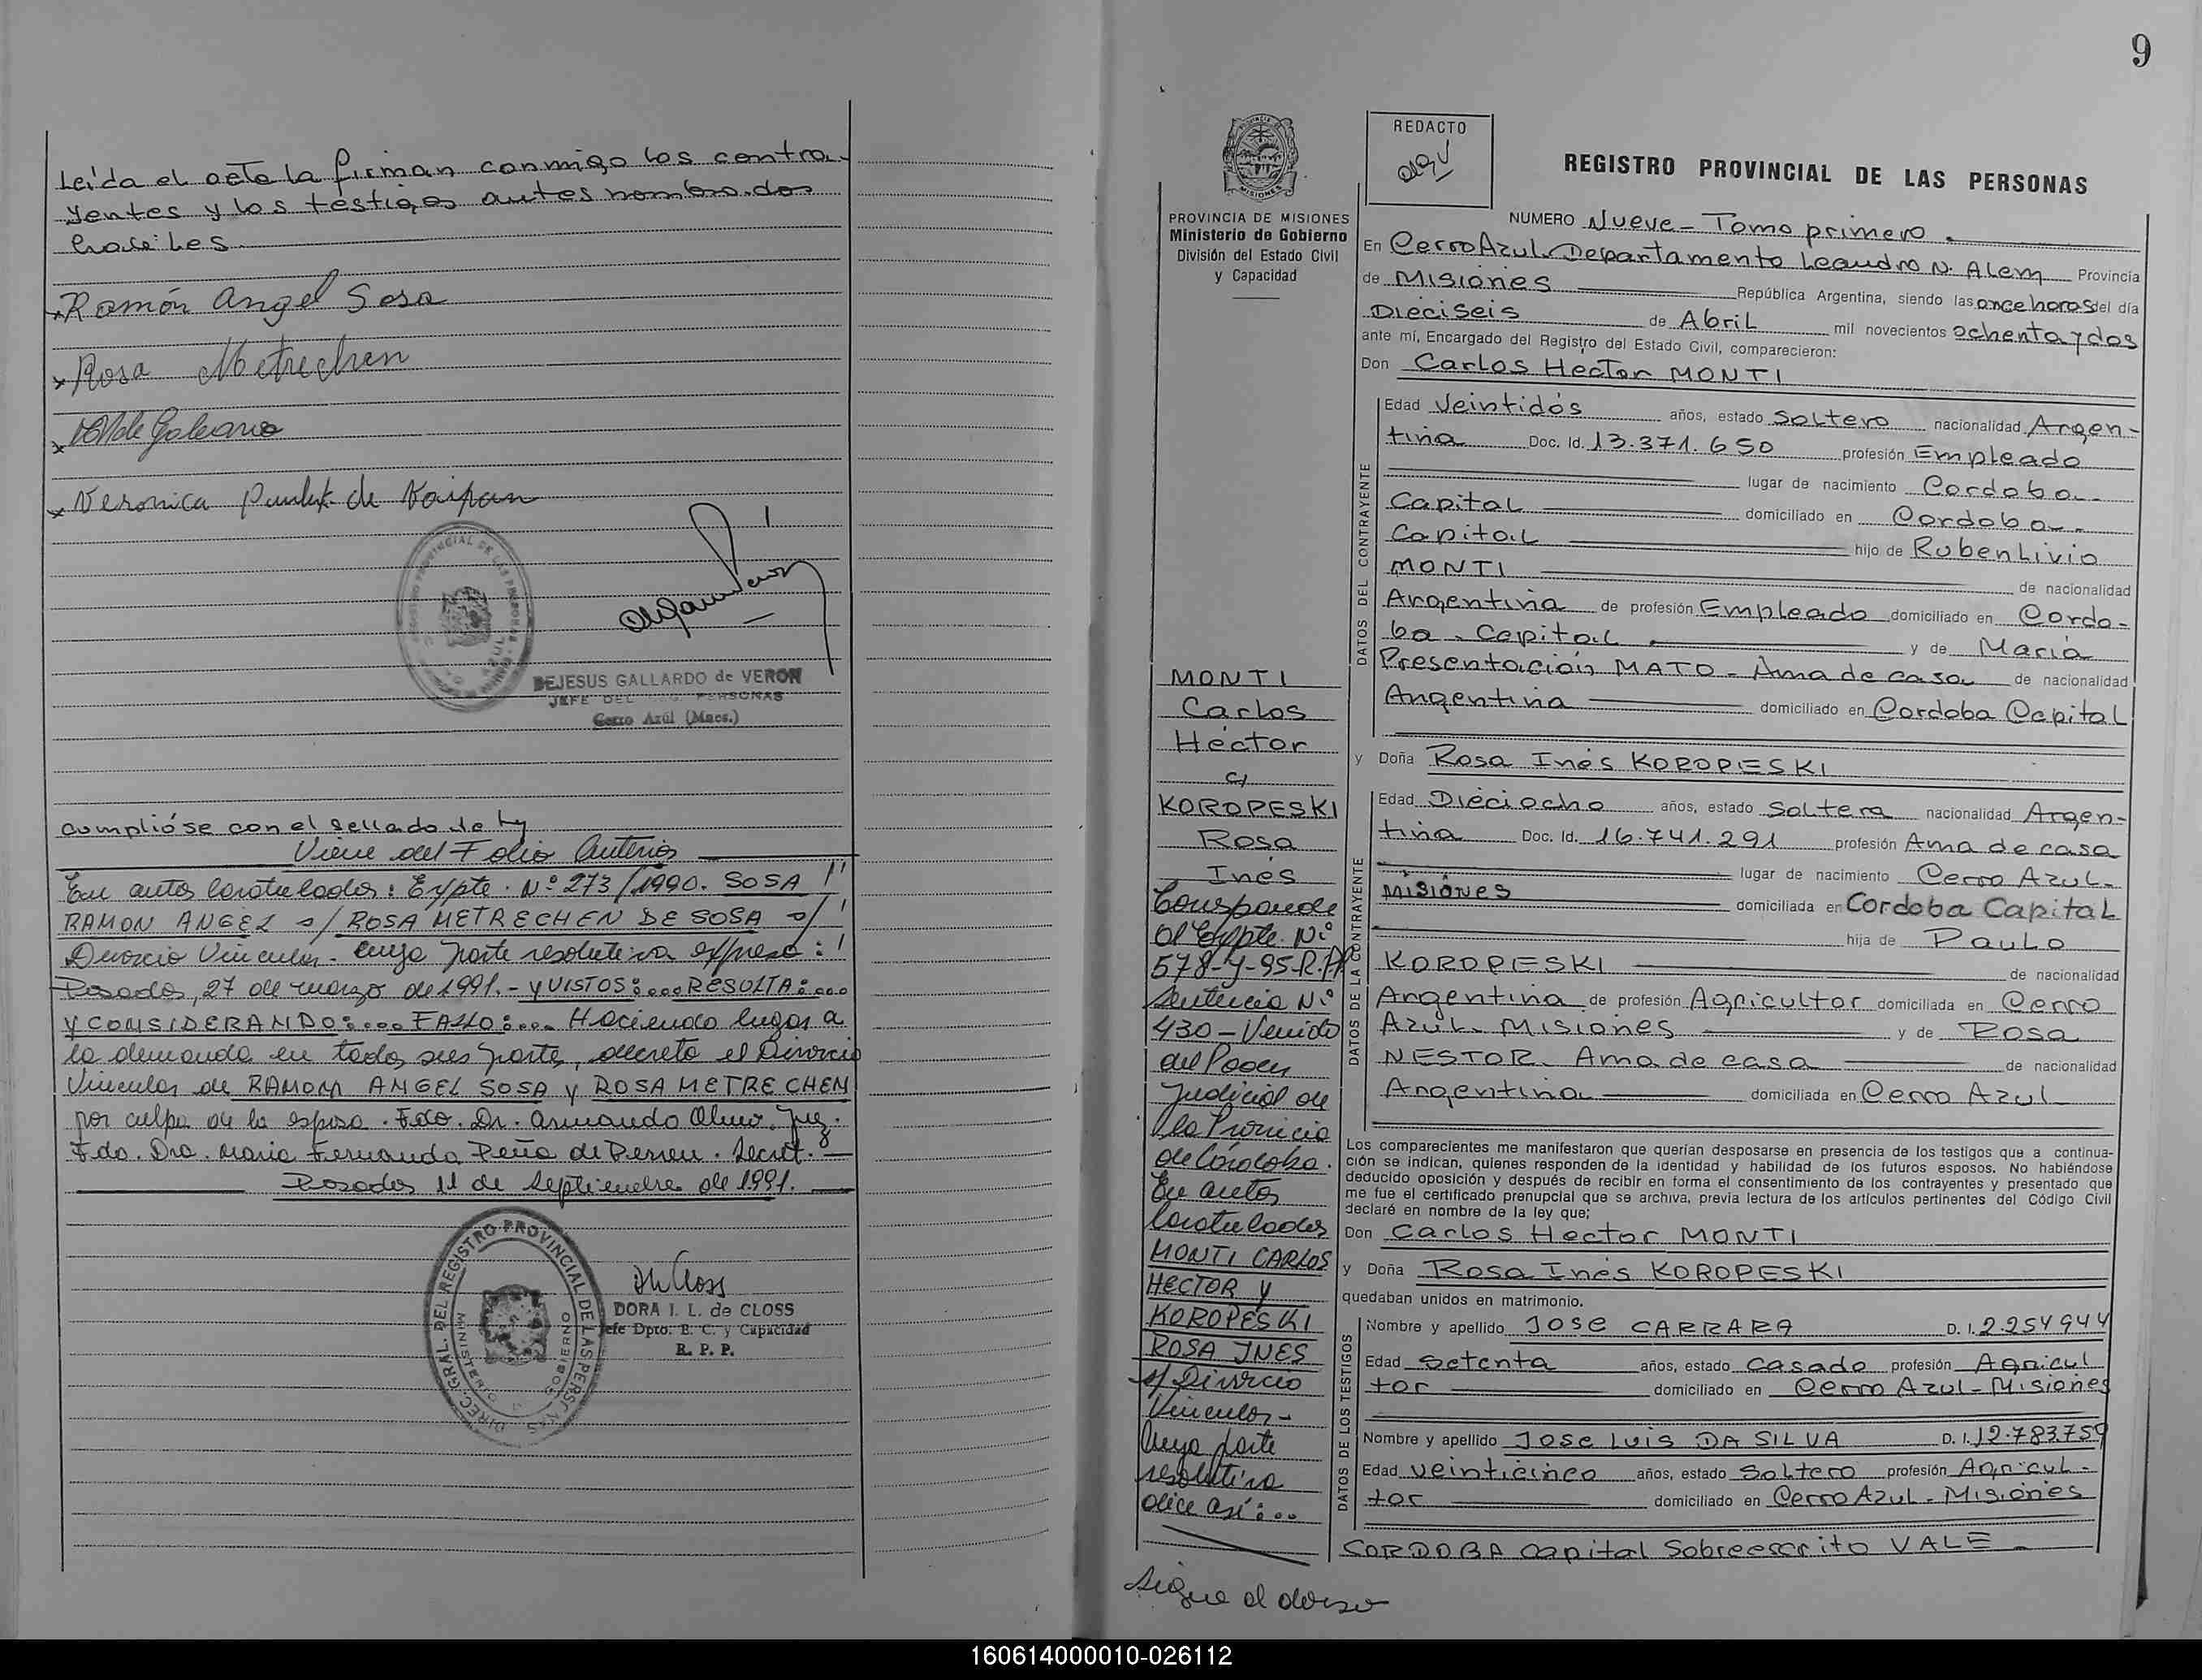 Leída el acta la firman conmigo los contra-
yentes y los testigos antes nombrados
hábiles
Ramón Angel Sosa
Rosa Metrechen
de Galeano
Veronica de
DEJESUS GALLARDO de VERON
JEFE DEL PERSONAS
Cerro Azúl (Mnes.)
cumplióse con el sellado de ley
Viene del Folio Anterior
En autos Caratulados: Expte. Nº 273/1990. SOSA
RAMON ANGEL c/ ROSA METRECHEN DE SOSA s/
Divorcio Vincular. Cuya parte resolutiva expresa:
Posadas, 27 de marzo de 1991.- Y VISTOS:... RESULTA:...
Y CONSIDERANDO:... FALLO:... Haciendo lugar a
la demanda en todas sus partes, decreto el Divorcio
Vincular de RAMON ANGEL SOSA y ROSA METRECHEN
por culpa de la esposa. Fdo. Dr. Armando Juez.
Fdo. Dra. Maria Fernanda Peña de . Secret.
Posadas 11 de Septiembre de 1991.
DIREC. GRAL. DEL REGISTRO PROVINCIAL DE LAS PERSONAS
MINISTERIO DE GOBIERNO
DORA I. L. de CLOSS
Jefe Dpto. E. C. y Capacidad
R. P. P.
9
PROVINCIA DE MISIONES
Ministerio de Gobierno
División del Estado Civil
y Capacidad
REDACTO
REGISTRO PROVINCIAL DE LAS PERSONAS
NUMERO Nueve - Tomo primero.
En Cerro Azul. Departamento Leandro N. Alem Provincia
de Misiones República Argentina, siendo las once horas del día
Dieciseis de Abril mil novecientos ochenta y dos
ante mí, Encargado del Registro del Estado Civil, comparecieron:
Don Carlos Hector MONTI
DATOS DEL CONTRAYENTE
Edad Veintidós años, estado Soltero nacionalidad Argen-
tina Doc. Id. 13.371.650 profesión Empleado
lugar de nacimiento Cordoba.
Capital domiciliado en Cordoba.
Capital hijo de Ruben Livio
MONTI de nacionalidad
Argentina de profesión Empleado domiciliado en Cordo-
ba. Capital. y de María
Presentación MATO - Ama de casa de nacionalidad
Argentina domiciliado en Cordoba Capital
y Doña Rosa Inés KOROPESKI
DATOS DE LA CONTRAYENTE
Edad Dieciocho años, estado Soltera nacionalidad Argen-
tina Doc. Id. 16.741.291 profesión Ama de casa
lugar de nacimiento Cerro Azul-
Misiones domiciliada en Cordoba Capital
hija de Paulo
KOROPESKI de nacionalidad
Argentina de profesión Agricultor domiciliada en Cerro
Azul. Misiones y de Rosa
NESTOR. Ama de casa de nacionalidad
Argentina domiciliada en Cerro Azul
Los comparecientes me manifestaron que querían desposarse en presencia de los testigos que a continua-
ción se indican, quienes responden de la identidad y habilidad de los futuros esposos. No habiéndose
deducido oposición y después de recibir en forma el consentimiento de los contrayentes y presentado que
me fue el certificado prenupcial que se archiva, previa lectura de los artículos pertinentes del Código Civil
declaré en nombre de la ley que;
Don Carlos Hector MONTI
y Doña Rosa Inés KOROPESKI
quedaban unidos en matrimonio.
DATOS DE LOS TESTIGOS
Nombre y apellido JOSE CARRARA D. I. 2.254944
Edad setenta años, estado casado profesión Agricul
tor domiciliado en Cerro Azul - Misiones
Nombre y apellido Jose Luis DA SILVA D. I. 12.783.759
Edad veinticinco años, estado Soltero profesión Agricul-
tor domiciliado en Cerro Azul - Misiones
CORDOBA Capital Sobreescrito VALE
MONTI
Carlos
Héctor
c/
KOROPESKI
Rosa
Inés
Corresponde
al Expte. Nº
578-Y-95-R.P.P.
Sentencia Nº
430 - Venido
del Poder
Judicial de
la Provincia
de Córdoba.
En autos
Caratulados
MONTI CARLOS
HECTOR y
KOROPESKI
ROSA INES
s/ Divorcio
Vincular -
Cuya parte
resolutiva
dice así:...
Sigue al dorso
160614000010-026112